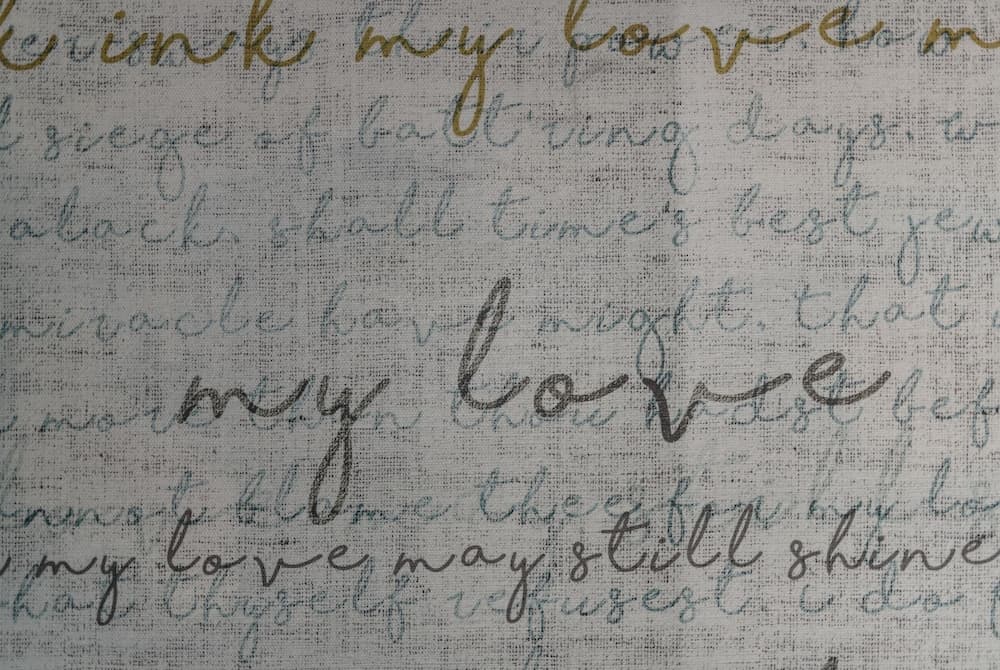 k ink my love m
l siege of batt'ring days. w
alack, shall time's best jew
miracle have might. that
my love
more than thou hadst bef
annot blame thee for my lo
my love may still shine
thyself refusest. i do